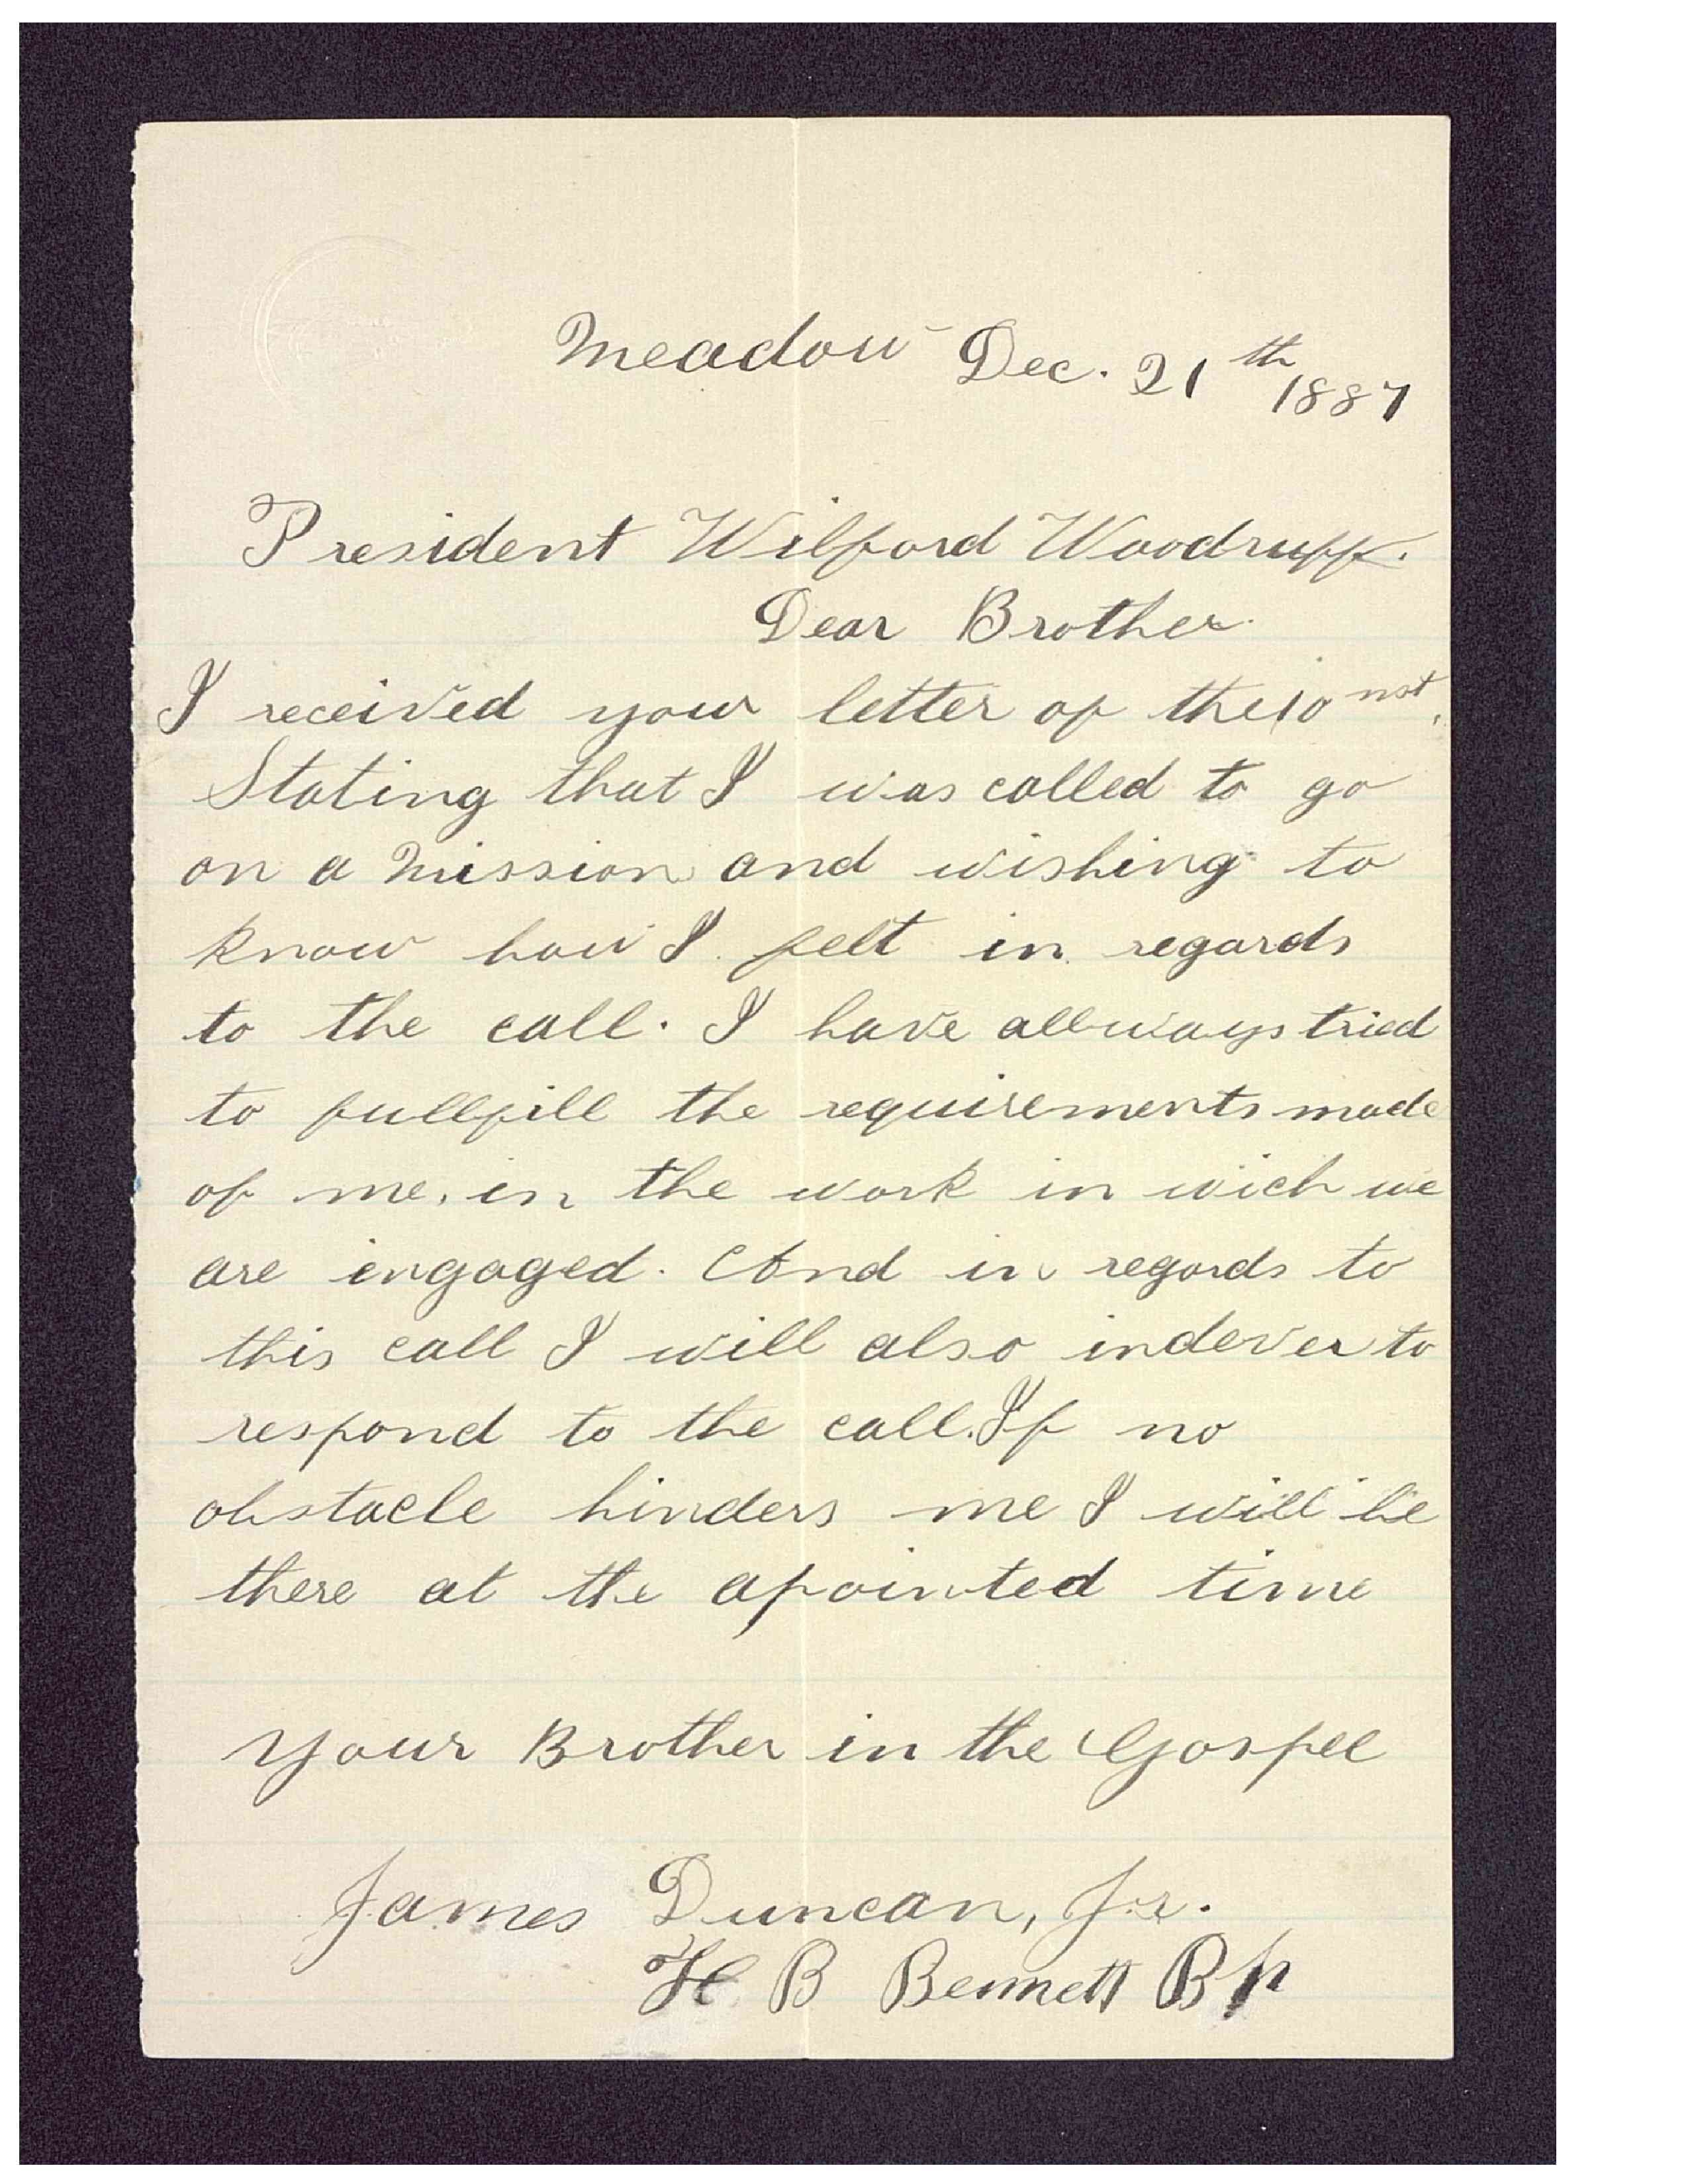 Meadow Dec. 21th 1887
President Wilford Woodruff.
Dear Brother.
I received your letter of the 10 inst,
Stating that I was called to go
on a Mission and wishing to
know how I felt in regards
to the call. I have allways tried
to fullfill the requirements made
of me, in the work in wich we
are engaged. And in regards to
this call I will also indever to
respond to the call. If no
obstacle hinders me I will be
there at the apointed time
Your Brother in the Gospel
James Duncan, Jr.
H B Bennett Bp